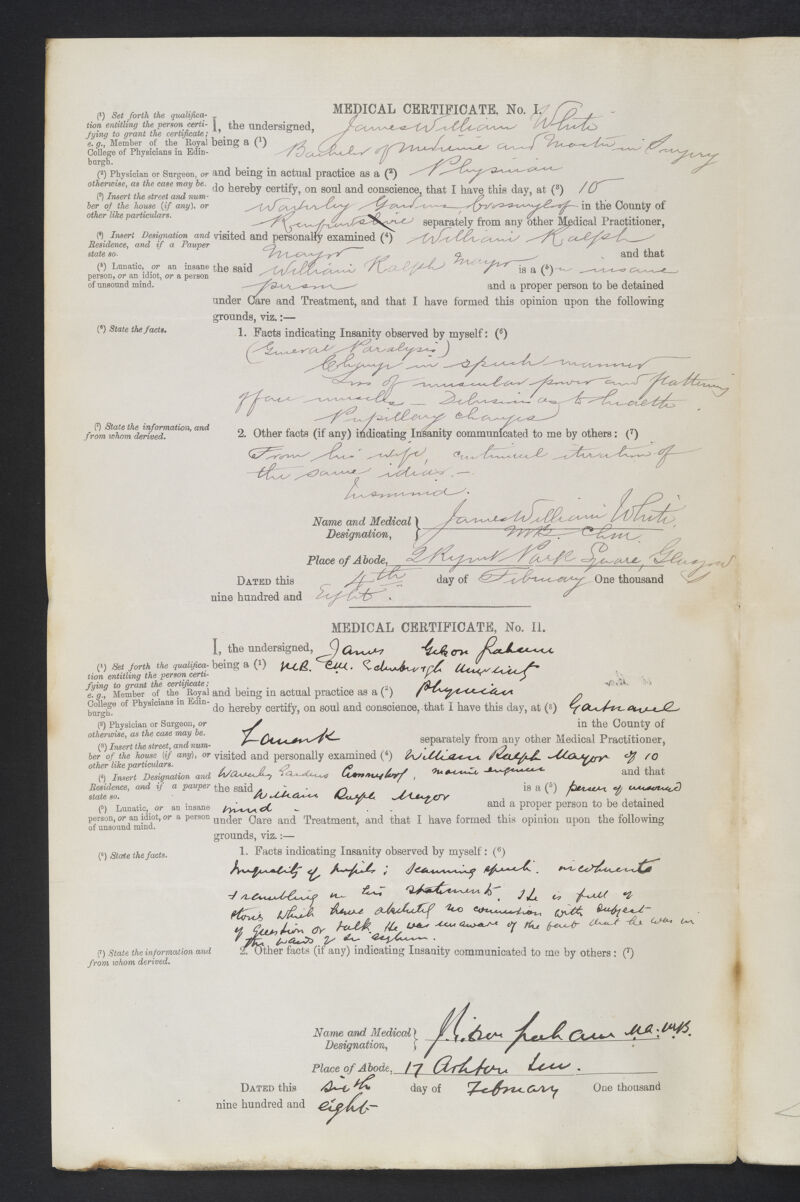 MEDICAL CERTIFICATE, No. I.
(¹) Set forth the qualifica-
tion entitling the person certi-
fying to grant the certificate;
e.g., Member of the Royal
College of Physicians in Edin-
burgh.
(²) Physician or Surgeon, or
otherwise, as the case may be.
(³) Insert the street and num-
ber of the house (if any), or
other like particulars.
(⁴) Insert Designation and
Residence, and if a Pauper
state so.
(⁵) Lunatic, or an insane
person, or an idiot, or a person
of unsound mind.
(⁶) State the facts.
(⁷) State the information, and
from whom derived.
I, the undersigned, James William White
being a (¹) Bachelor of Medicine and Master in Surgery
and being in actual practice as a (²) Physician
do hereby certify, on soul and conscience, that I have this day, at (³) 10
Waverley Gardens, Crossmyloof in the County of
Renfrewshire separately from any other Medical Practitioner,
visited and personally examined (⁴) William Ralph
Mayor and that
the said William Ralph Mayor is a (⁵) insane
person and a proper person to be detained
under Care and Treatment, and that I have formed this opinion upon the following
grounds, viz.:—
1. Facts indicating Insanity observed by myself: (⁶)
(General Paralysis)
Change in speech manner
Loss of muscular power and flattening
of face muscles — Delusion as to health
Pupillary changes
2. Other facts (if any) indicating Insanity communicated to me by others: (⁷)
From his wife, continual iteration of
the same ideas.—
Insomnia.
Name and Medical Designation, James William White.
MB. ChM.
Place of Abode, 2 Regent Park Square, Glasgow
DATED this 4th day of February One thousand
nine hundred and Eight.
MEDICAL CERTIFICATE, No. II.
(¹) Set forth the qualifica-
tion entitling the person certi-
fying to grant the certificate;
e.g., Member of the Royal
College of Physicians in Edin-
burgh.
(²) Physician or Surgeon, or
otherwise, as the case may be.
(³) Insert the street, and num-
ber of the house (if any), or
other like particulars.
(⁴) Insert Designation and
Residence, and if a pauper
state so.
(⁵) Lunatic, or an insane
person, or an idiot, or a person
of unsound mind.
(⁶) State the facts.
(⁷) State the information and
from whom derived.
I, the undersigned, James Gibson Graham
being a (¹) M.B. C.M. Edinburgh University
and being in actual practice as a (²) Physician
do hereby certify, on soul and conscience, that I have this day, at (³) Gartnavel
in the County of
Lanark separately from any other Medical Practitioner,
visited and personally examined (⁴) William Ralph Mayor of 10
Waverley Gardens Crossmyloof, marine engineer and that
the said William Ralph Mayor is a (⁵) person of unsound
mind and a proper person to be detained
under Care and Treatment, and that I have formed this opinion upon the following
grounds, viz.:—
1. Facts indicating Insanity observed by myself: (⁶)
Inequality of pupils; scanning speech. incoherence
& rambling in his statements. He is full of
stories which have absolutely no connection with subject
of question or talk. He was unaware of the fact that he was in
the wards of an asylum.
2. Other facts (if any) indicating Insanity communicated to me by others: (⁷)
Name and Medical Designation, J. Gibson Graham M.A. M.B.
Place of Abode, 17 Ashton Terr.
DATED this sixth day of February One thousand
nine hundred and eight